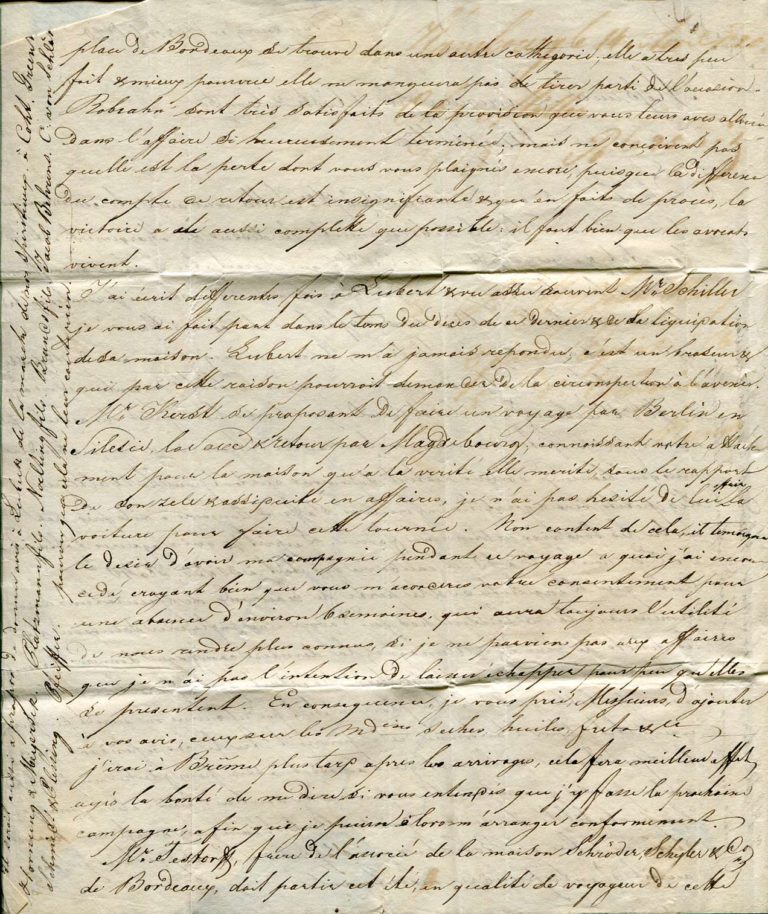 place de Bordeaux se trouve dans une autre cathegorie, elle a tres peu
fait & mieux pourvue elle ne manquera pas de tirer parti de l'occasion.
Robrahn sont très satisfaits de la provision que vous leurs avés
dans l'affaire si heureusement terminée; mais ne conçoivent pas
quelle est la perte dont vous vous plaignés encore, puisque la difference
du compte de retour est insignifiante & qu'en faits de procès, la
victoire a été aussi complette que possible: il faut bien que les avocats
vivent.
J'ai écrit differentes fois à Lubert & vu assés souvent Mr. Schiller
je vous ai fait part dans le tems du déces de ce dernier & de la liquidation
de sa maison. Lubert ne m'a jamais repondu, c'est un &
qui par cette raison pourroit demander de la circonspection à l'avenir.
Mr. Kerst se proposant de faire un voyage par Berlin en
Silesie, & retour par Magdebourg, connoissant votre attache-
ment pour la maison qu'à la verité elle merite, sous le rapport
de son zele & assiduité en affaires, je n'ai pas hesité de lui la
voiture pour faire cette tournée. Non content de cela, il temoigna
le desir d'avoir ma compagnie pendant ce voyage a quoi j'ai encore
cedé, croyant bien que vous m'accorderés votre consentement pour
une absence d'environ 6 semaines, qui aura toujours l'utilité
de nous rendre plus connus, si je ne parviens pas aux affaires
que je n'ai pas l'intention de laisser échapper pour peu qu'elles
se presentent. En consequence, je vous prie, Messieurs, d'ajouter
à vos avis, ceux sur les seches, huiles, &
j'irai à Brême plus tard apres les arrivages, cela fera meilleur effet,
ayés la bonté de me dire si vous entendés que j'y fasse la prochaine
campagne, afin que je puisse alors m'arranger conformement.
Mr. Testorff, frere de l'associé de la maison Schröder, Schyler & Co
de Bordeaux, doit partir cet été, en qualité de voyageur de cette
à propos de donner avis à Lubeck de la marche de nos spiritueux, à
Platzmann fils. Nölting fils. fils. Jacob Behrens. C. von
Pfeiffer.